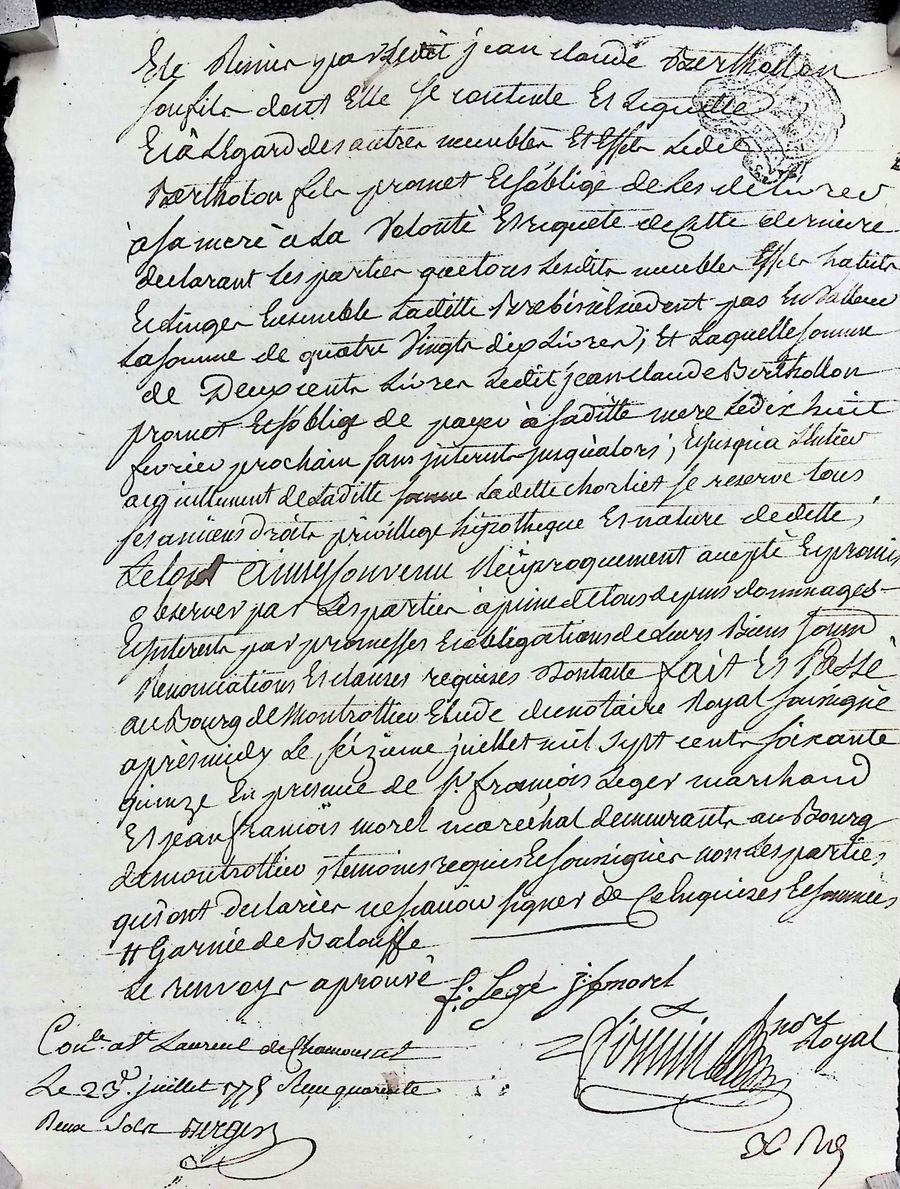 Ete Remis par Ledit jean claude Bertholon
son fils dont Elle se contente Et Lequitte
Et à Légard des autres meubles Et Effets Ledit
Bertholon fils promet Et sôblige de Les delivrer
à sa mere à La Volonté Et requête de Cette derniere
declarant Les parties que tous Lesdits meubles Effets habits
Et Linges Ensemble Laditte Brebis n'Excedent pas En Valleur
La somme de quatre Vingts dix Livres; Et Laquelle somme
de Deux cents Livres Ledit jean claude Berthollon
promet Et sôblige de payer à saditte mere Le dix huit
fevrier prochain sans jnterets jusquàlors; Et jusqua Lentier
acquittement de Laditte somme Laditte Chorliet se reserve tous
ses anciens droits privillege hipotheque Et nature de dette;
Le tout Ainsy Convenu Réciproquement acepté Et promis
observer par Les parties à peine de tous depens dommages
Et jnterets par promesses Et obligations de Leurs Biens soumd
Renonciations Et clauses requises Dontacte fait Et Passé
au Bourg de Montrottier Etude du notaire Royal soussigné
après midy Le séizieme juillet mil Sept cents soixante
quinze En presence de Sr. françois Leger marchand
Et jean françois morel marechal demeurants au Bourg
de montrottier témoins requis Et soussignés non Les parties
qui ont declarées ne sçavoir signer de Ce Enquises Et sommées
# Garnie de Balouffe
Le renvoy aprouvé
f. Legé j. f morel
not Royal
Conlé. à St Laurent de Chamousset
Le 23e. juillet 1775 Reçu quarente
Deux Sols